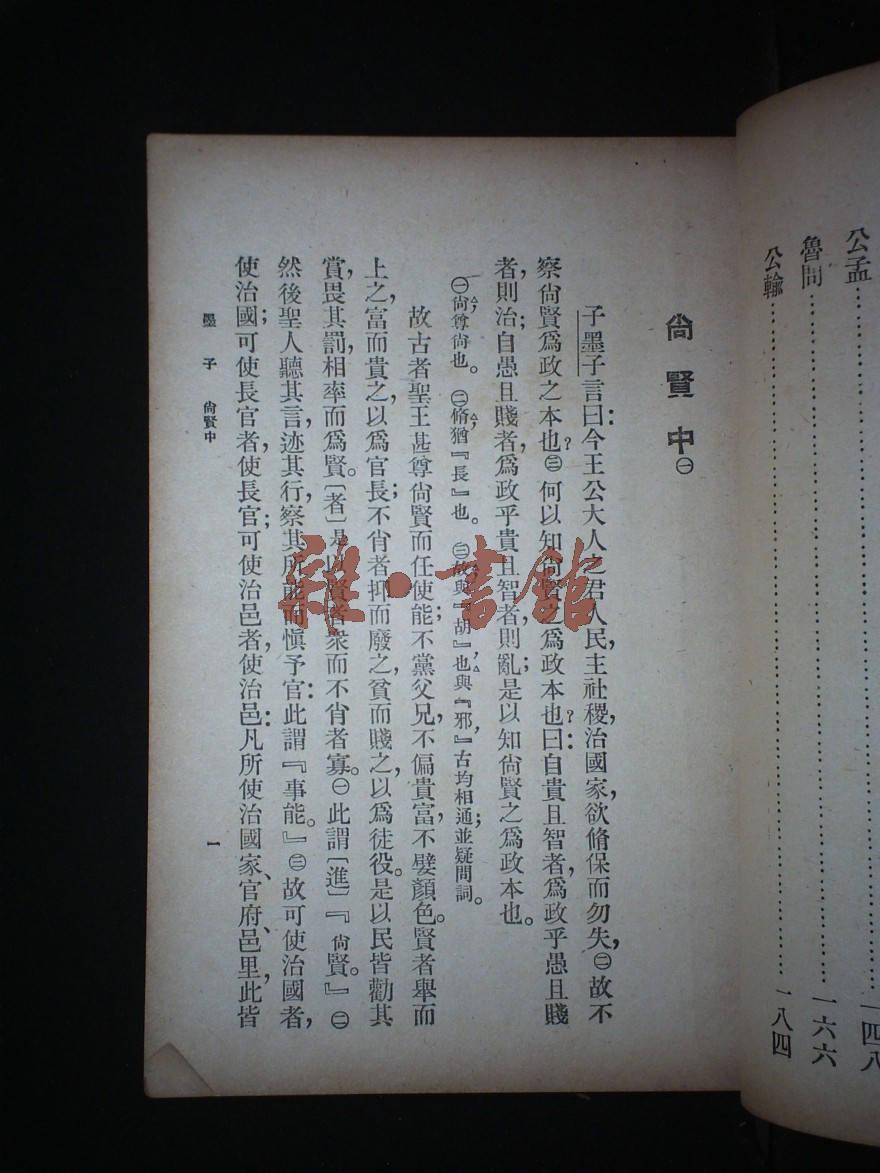 公孟……………………一四八
魯問……………………一六六
公輸……………………一八四
尙賢中㊀
子墨子言曰：今王公大人之君人民，主社稷，治國家，欲脩保而勿失，㊁故不
察尙賢爲政之本也？㊂何以知尙賢之爲政本也？曰：自貴且智者，爲政乎愚且賤
者，則治；自愚且賤者，爲政乎貴且智者，則亂；是以知尙賢之爲政本也。
㊀尙，尊尙也。㊁脩，猶『長』也。㊂故，與『胡』也，與『邪』，古均相通；並疑問詞。
故古者聖王甚尊尙賢而任使能；不黨父兄，不偏貴富，不嬖顏色。賢者舉而
上之，富而貴之，以爲官長；不肖者抑而廢之，貧而賤之，以爲徒役。是以民皆勸其
賞，畏其罰，相率而爲賢。〔者〕是以賢者衆而不肖者寡。㊀此謂〔進〕『尙賢。』㊁
然後聖人聽其言，迹其行，察其所能而愼予官：此謂『事能。』㊂故可使治國者，
使治國；可使長官者，使長官；可使治邑者，使治邑：凡所使治國家、官府、邑里，此皆
墨子 尙賢中
一
雜·書館